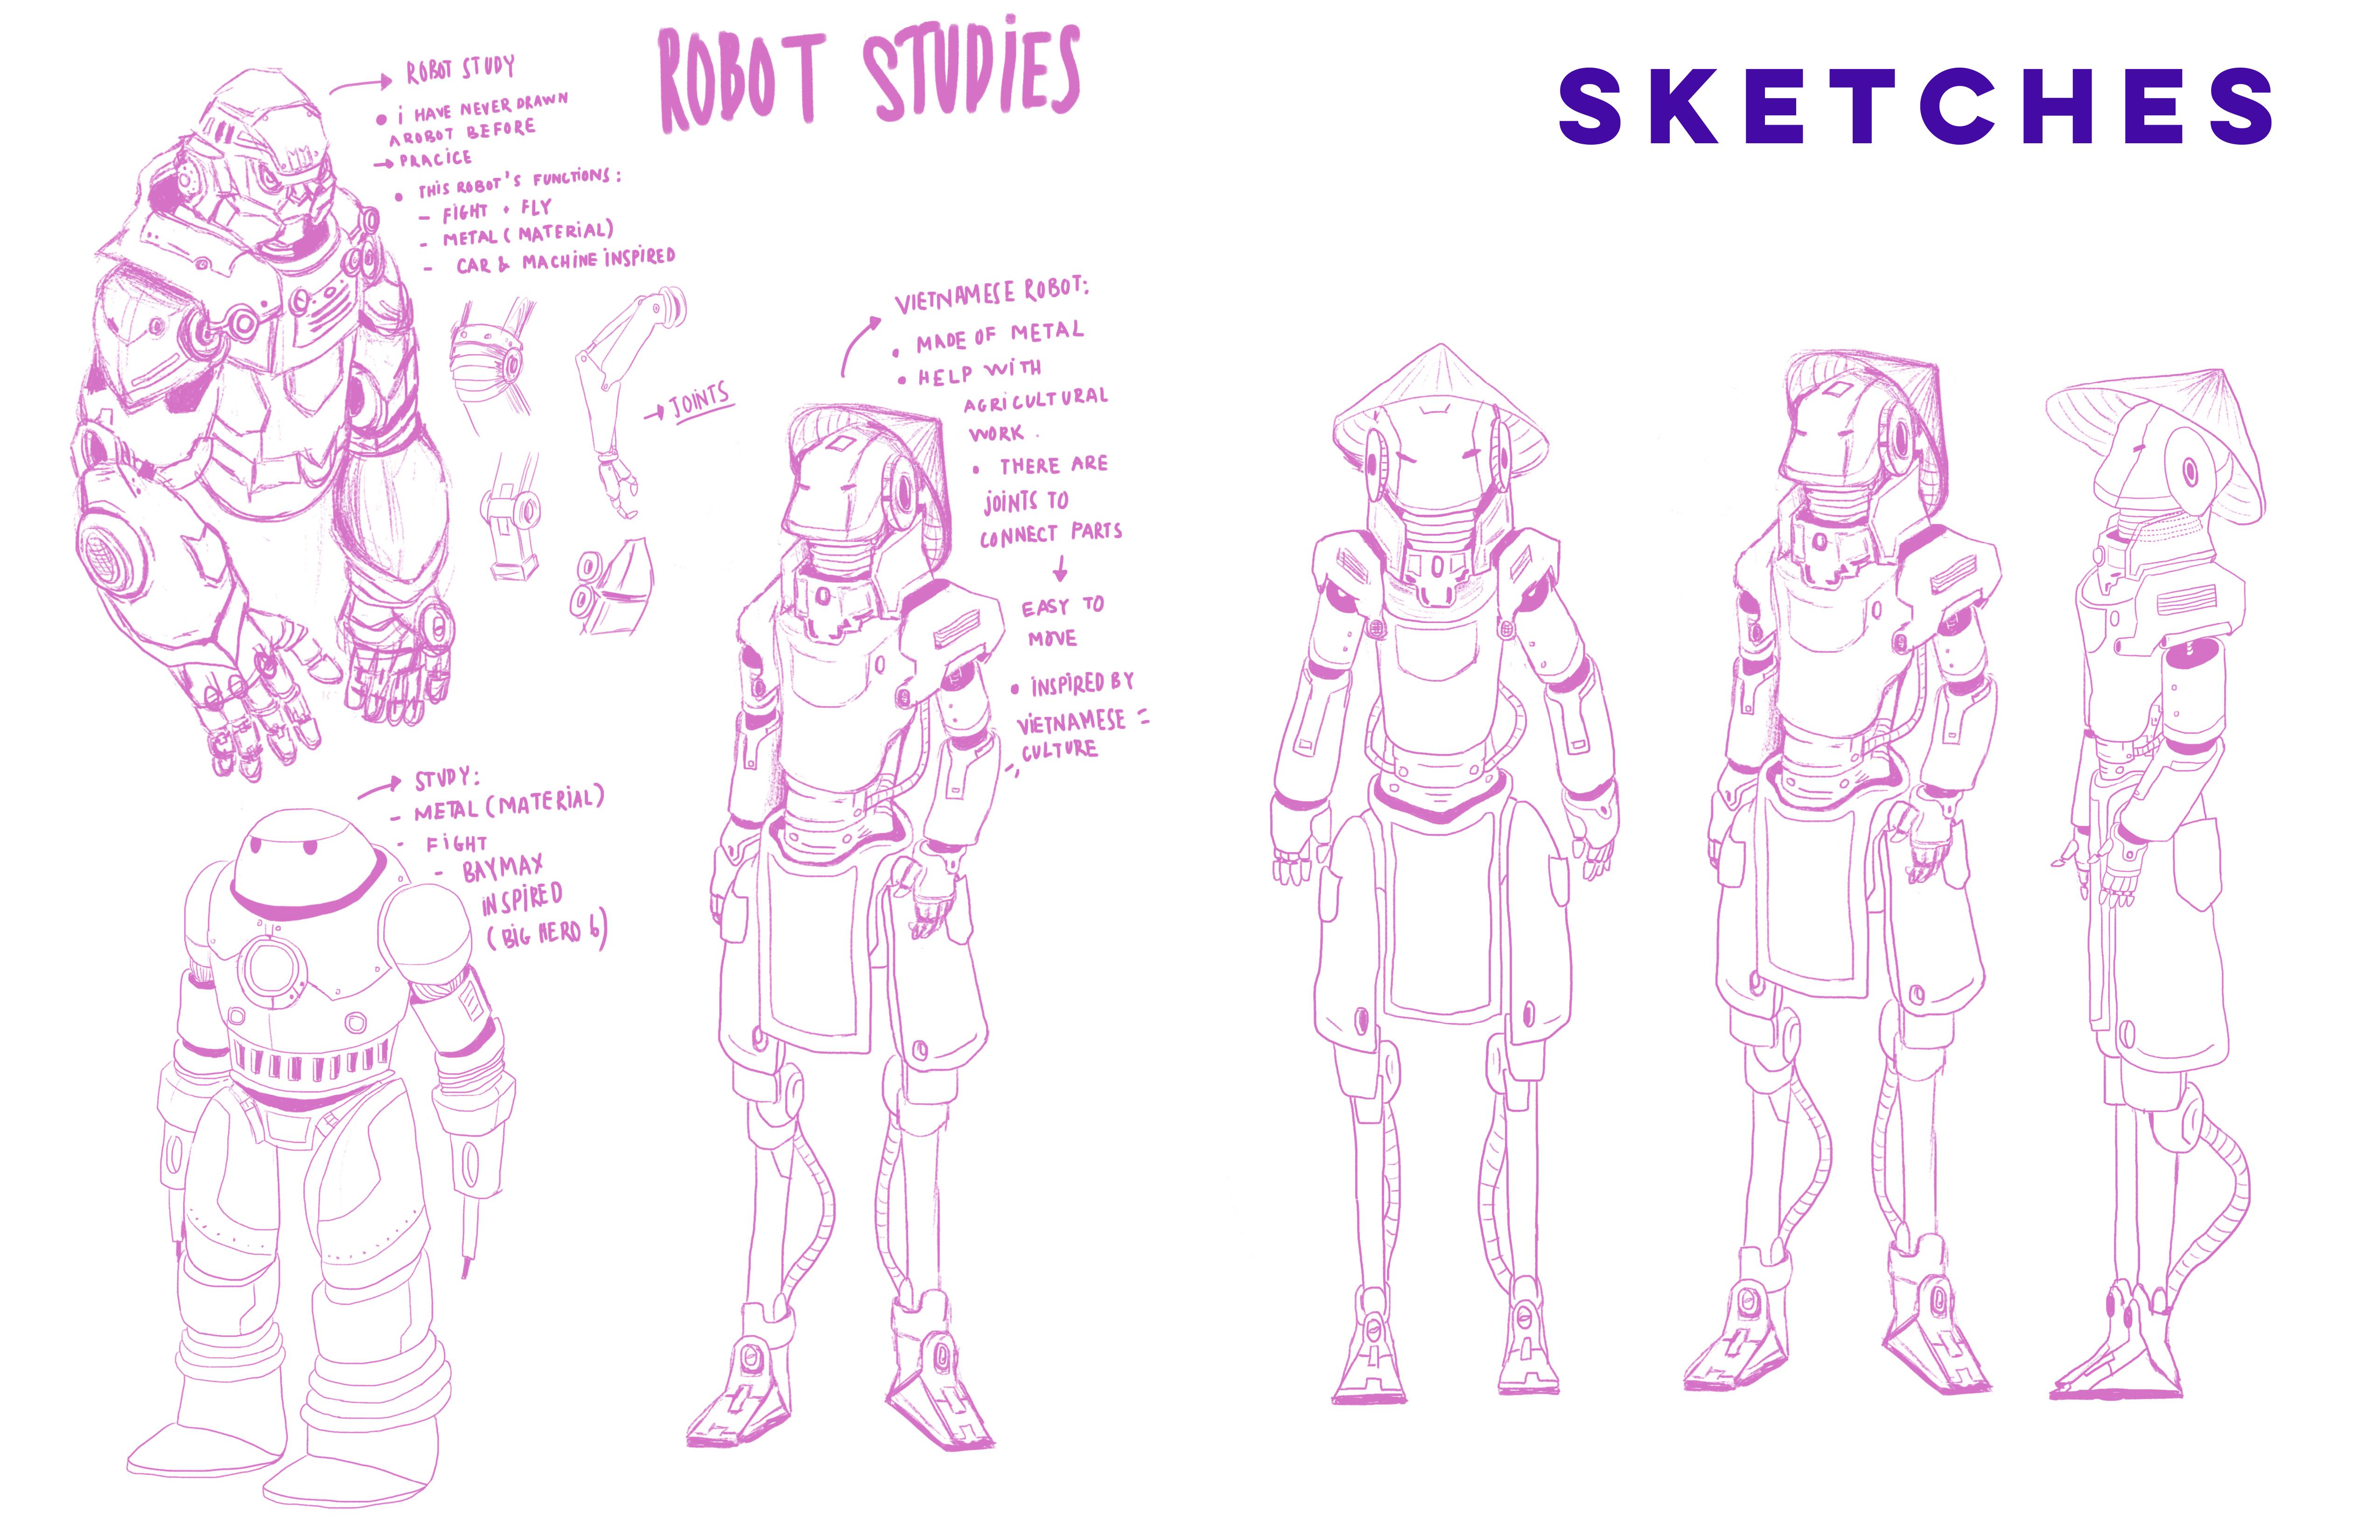 ROBOT STUDIES
SKETCHES
ROBOT STUDY
• i HAVE NEVER DRAWN
A ROBOT BEFORE
→ PRACICE
• THIS ROBOT'S FUNCTIONS:
- FIGHT + FLY
- METAL (MATERIAL)
- CAR & MACHINE INSPIRED
→ JOINTS
VIETNAMESE ROBOT:
• MADE OF METAL
• HELP WITH
AGRICULTURAL
WORK.
• THERE ARE
JOINTS TO
CONNECT PARTS
↓
EASY TO
MOVE
• INSPIRED BY
VIETNAMESE
CULTURE
STUDY:
- METAL (MATERIAL)
- FIGHT
- BAYMAX
INSPIRED
(BIG HERO 6)
MM